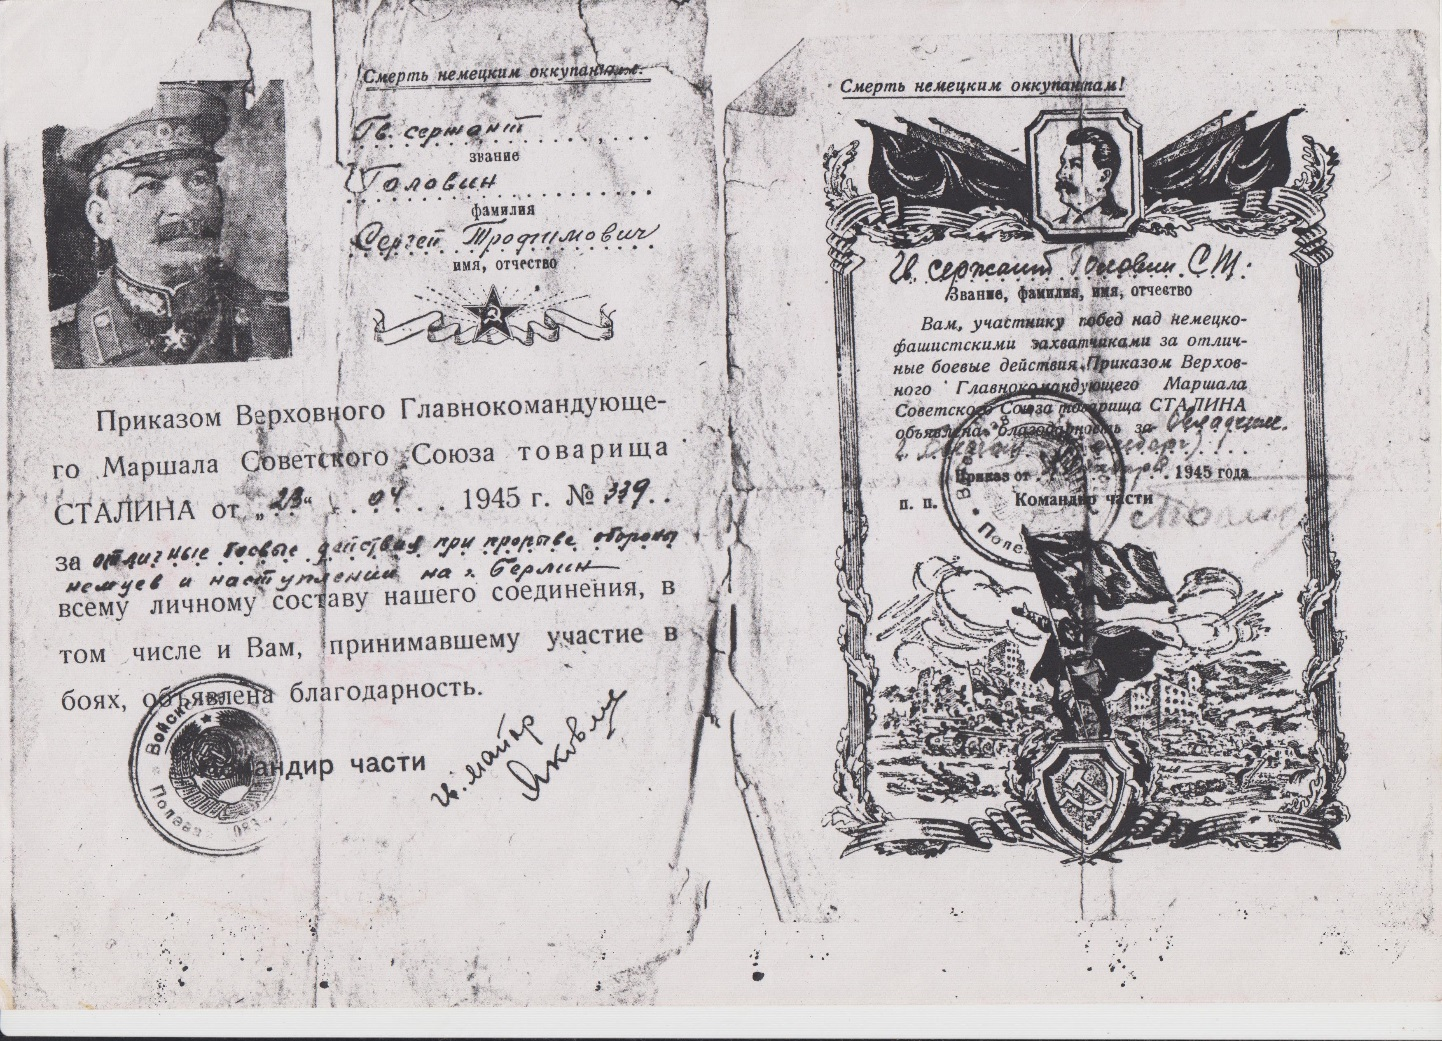 Смерть немецким оккупантам!
Гв. сержант
звание
Головин
фамилия
Сергей Трофимович
имя, отчество
Приказом Верховного Главнокомандующе-
го Маршала Советского Союза товарища
СТАЛИНА от „23“ 04 1945 г. № 339
за отличные боевые действия при прорыве обороны
немцев и наступлении на г. Берлин
всему личному составу нашего соединения, в
том числе и Вам, принимавшему участие в
боях, объявлена благодарность.
Командир части
гв. майор
Войск
Полева
Смерть немецким оккупантам!
Гв. сержант Головин С.Т.
Звание, фамилия, имя, отчество
Вам, участнику побед над немецко-
фашистскими захватчиками за отлич-
ные боевые действия Приказом Верхов-
ного Главнокомандующего Маршала
Советского Союза товарища СТАЛИНА
объявлена благодарность за
г.
Приказ от 1945 года
п. п. Командир части
Полев